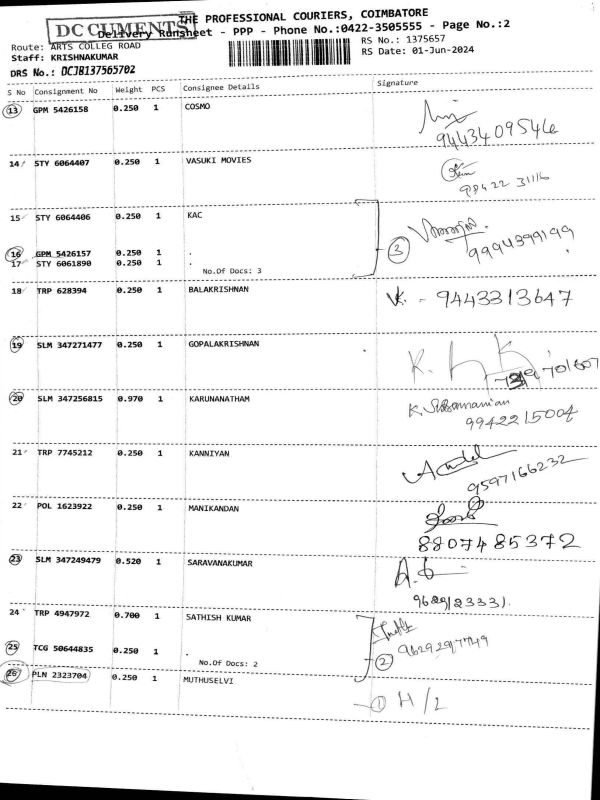 THE PROFESSIONAL COURIERS, COIMBATORE
DOCUMENTS
Delivery Runsheet - PPP - Phone No.:0422-3505555 - Page No.:2
Route: ARTS COLLEG ROAD
RS No.: 1375657
Staff: KRISHNAKUMAR
RS Date: 01-Jun-2024
DRS No.: DCJB137565702
S No Consignment No Weight PCS Consignee Details Signature
13 GPM 5426158 0.250 1 COSMO
9443409546
14 STY 6064407 0.250 1 VASUKI MOVIES
98422 31116
15 STY 6064406 0.250 1 KAC
3 9994399199
16 GPM 5426157 0.250 1 .
17 STY 6061890 0.250 1 .
No.Of Docs: 3
18 TRP 628394 0.250 1 BALAKRISHNAN
9443313647
19 SLM 347271477 0.250 1 GOPALAKRISHNAN
20 SLM 347256815 0.970 1 KARUNANATHAM
K. Subramanian
9942215004
21 TRP 7745212 0.250 1 KANNIYAN
9597166232
22 POL 1623922 0.250 1 MANIKANDAN
8807485372
23 SLM 347249479 0.520 1 SARAVANAKUMAR
24 TRP 4947972 0.700 1 SATHISH KUMAR
9629297749
25 TCG 50644835 0.250 1 .
2
No.Of Docs: 2
26 PLN 2323704 0.250 1 MUTHUSELVI
1 H/L